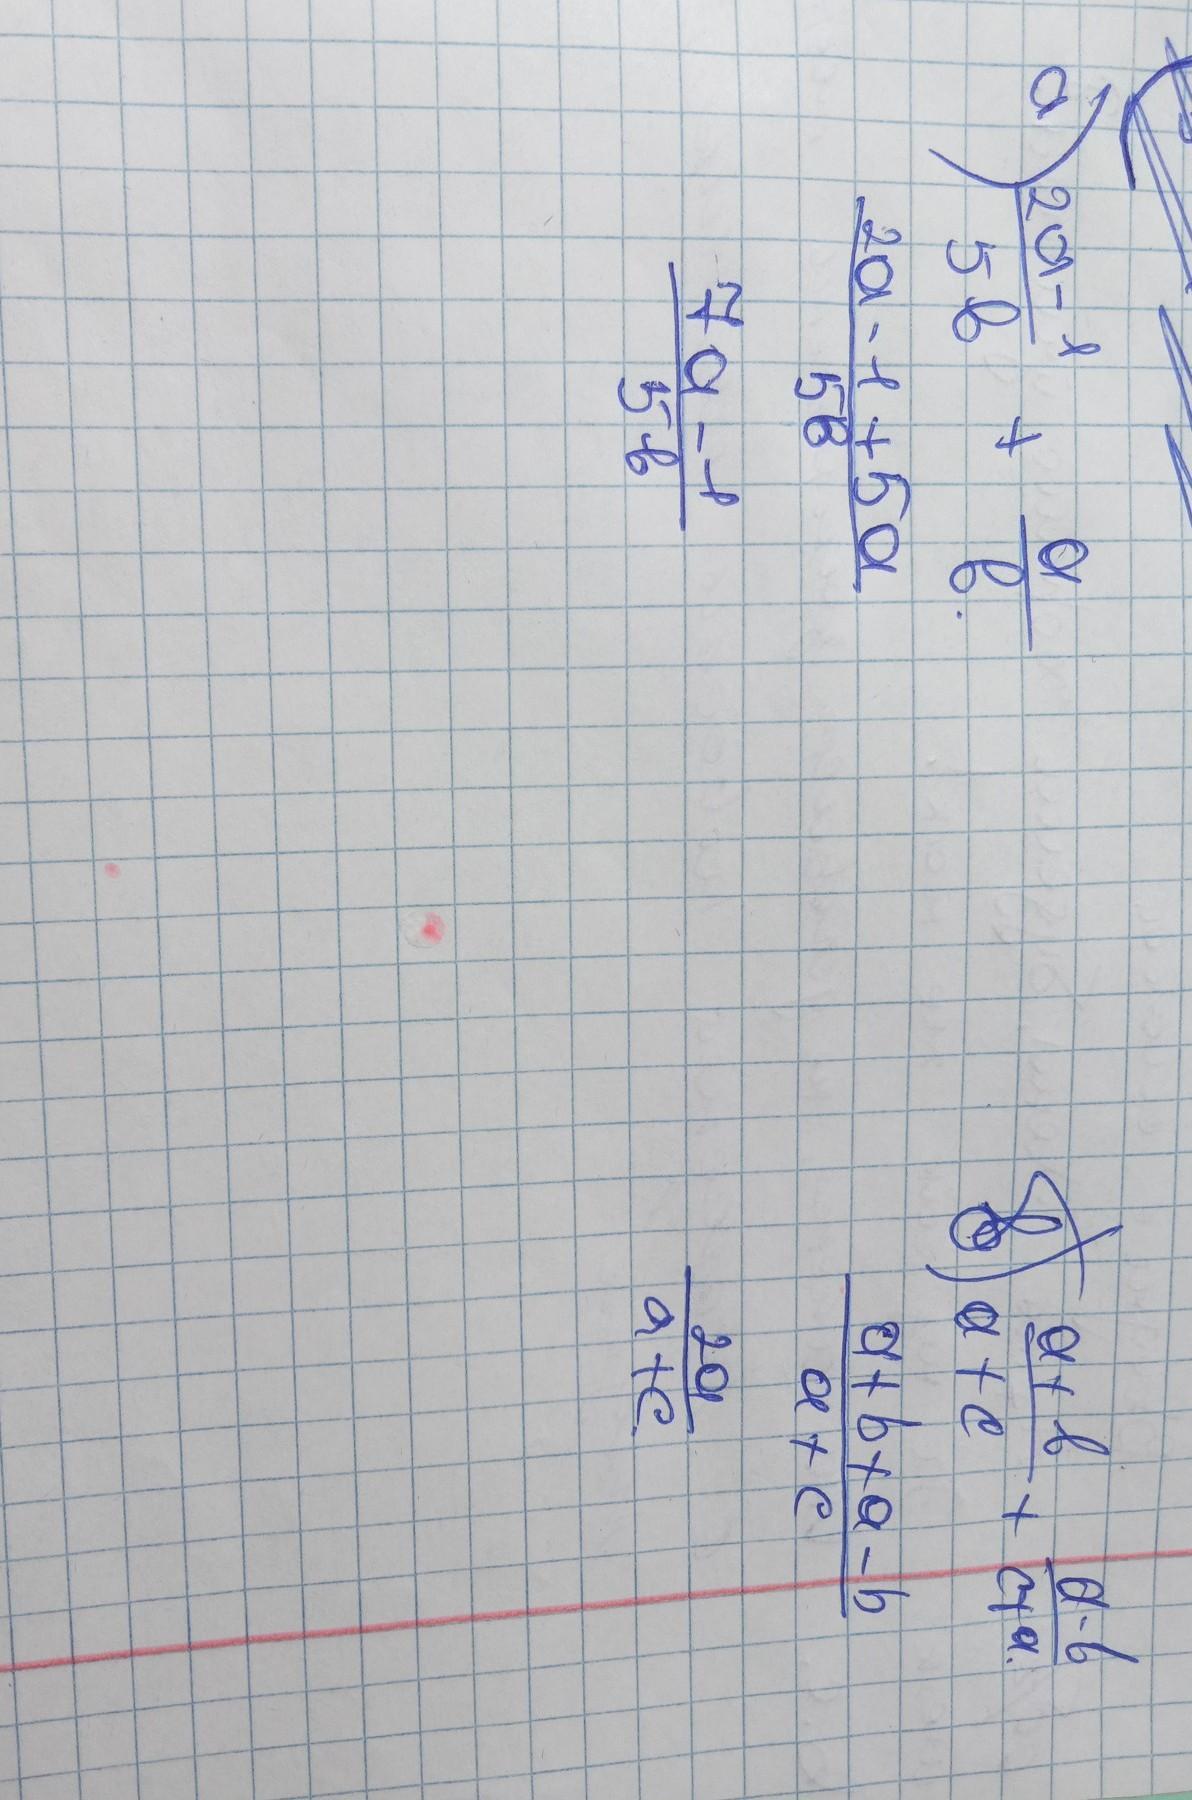 а) 2a-1/5b + a/b.
2a-1+5a/5b
7a-1/5b
б) a+b/a+c + a-b/c+a.
a+b+a-b/a+c
2a/a+c